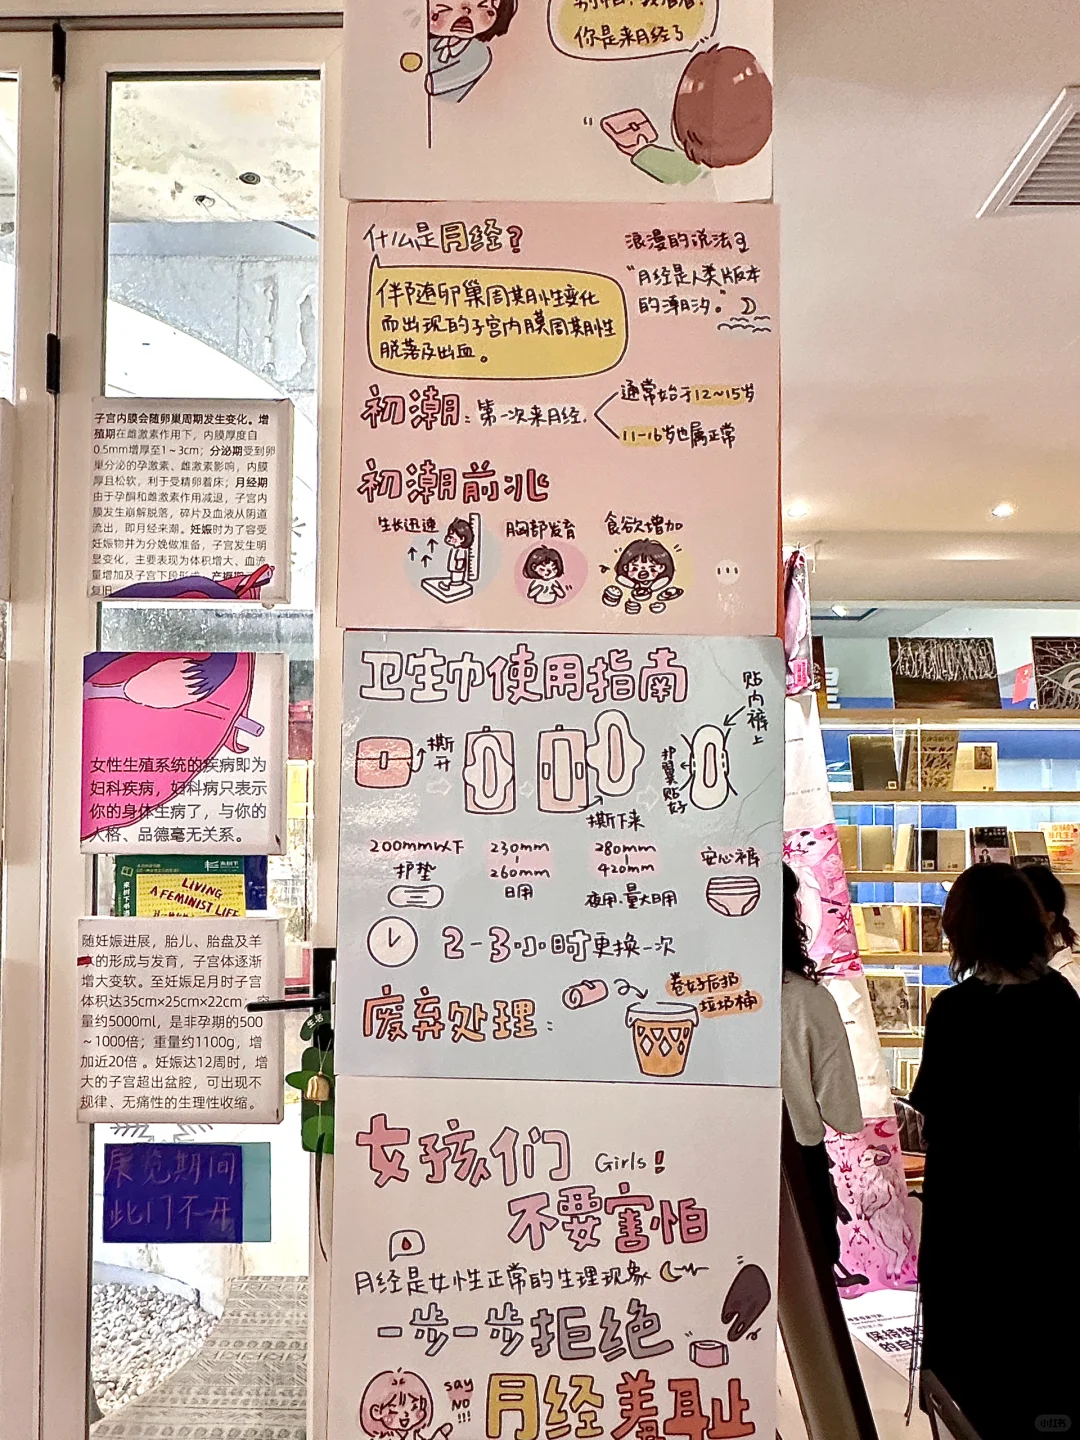 你是来月经了
什么是月经?
伴随卵巢周期性变化
而出现的子宫内膜周期性
脱落及出血。
浪漫的说法
"月经是人类版本
的潮汐。"
初潮:第一次来月经.
通常始于12~15岁
11-16岁也属正常
初潮前兆
生长迅速
胸部发育
食欲增加
子宫内膜会随卵巢周期发生变化。增
殖期在雌激素作用下,内膜厚度自
0.5mm增厚至1~3cm;分泌期受到卵
巢分泌的孕激素、雌激素影响,内膜
厚且松软,利于受精卵着床;月经期
由于孕酮和雌激素作用减退,子宫内
膜发生崩解脱落,碎片及血液从阴道
流出,即月经来潮。妊娠时为了容受
妊娠物并为分娩做准备,子宫发生明
显变化,主要表现为体积增大、血流
量增加及子宫下段形成。产褥期
复旧
女性生殖系统的疾病即为
妇科疾病,妇科病只表示
你的身体生病了,与你的
人格、品德毫无关系。
LIVING
A FEMINIST LIFE
随妊娠进展,胎儿、胎盘及羊
的形成与发育,子宫体逐渐
增大变软。至妊娠足月时子宫
体积达35cm×25cm×22cm;容
量约5000ml,是非孕期的500
~1000倍;重量约1100g,增
加近20倍。妊娠达12周时,增
大的子宫超出盆腔,可出现不
规律、无痛性的生理性收缩。
展览期间
此门不开
卫生巾使用指南
撕开
撕下来
护翼贴好
贴内裤上
200mm以下
护垫
230mm
260mm
日用
280mm
420mm
夜用.量大日用
安心裤
2-3小时更换一次
废弃处理:
卷好后扔
垃圾桶
女孩们 Girls!
不要害怕
月经是女性正常的生理现象
一步一步拒绝
say
NO
!!!
月经羞耻
保持
的自
小红书